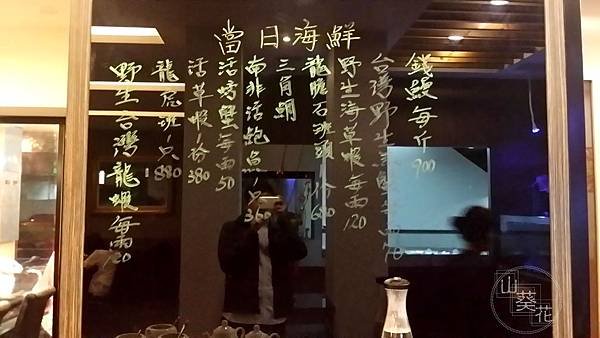 當日海鮮
錢鰻每斤900
台灣野生 每兩70
野生海草蝦每兩120
龍膽石斑頭1份680
三角鯛
南非活鮑魚1只360
活螃蟹每兩50
活草蝦1份380
龍虎班1只880
野生台灣龍蝦每兩120
山葵花